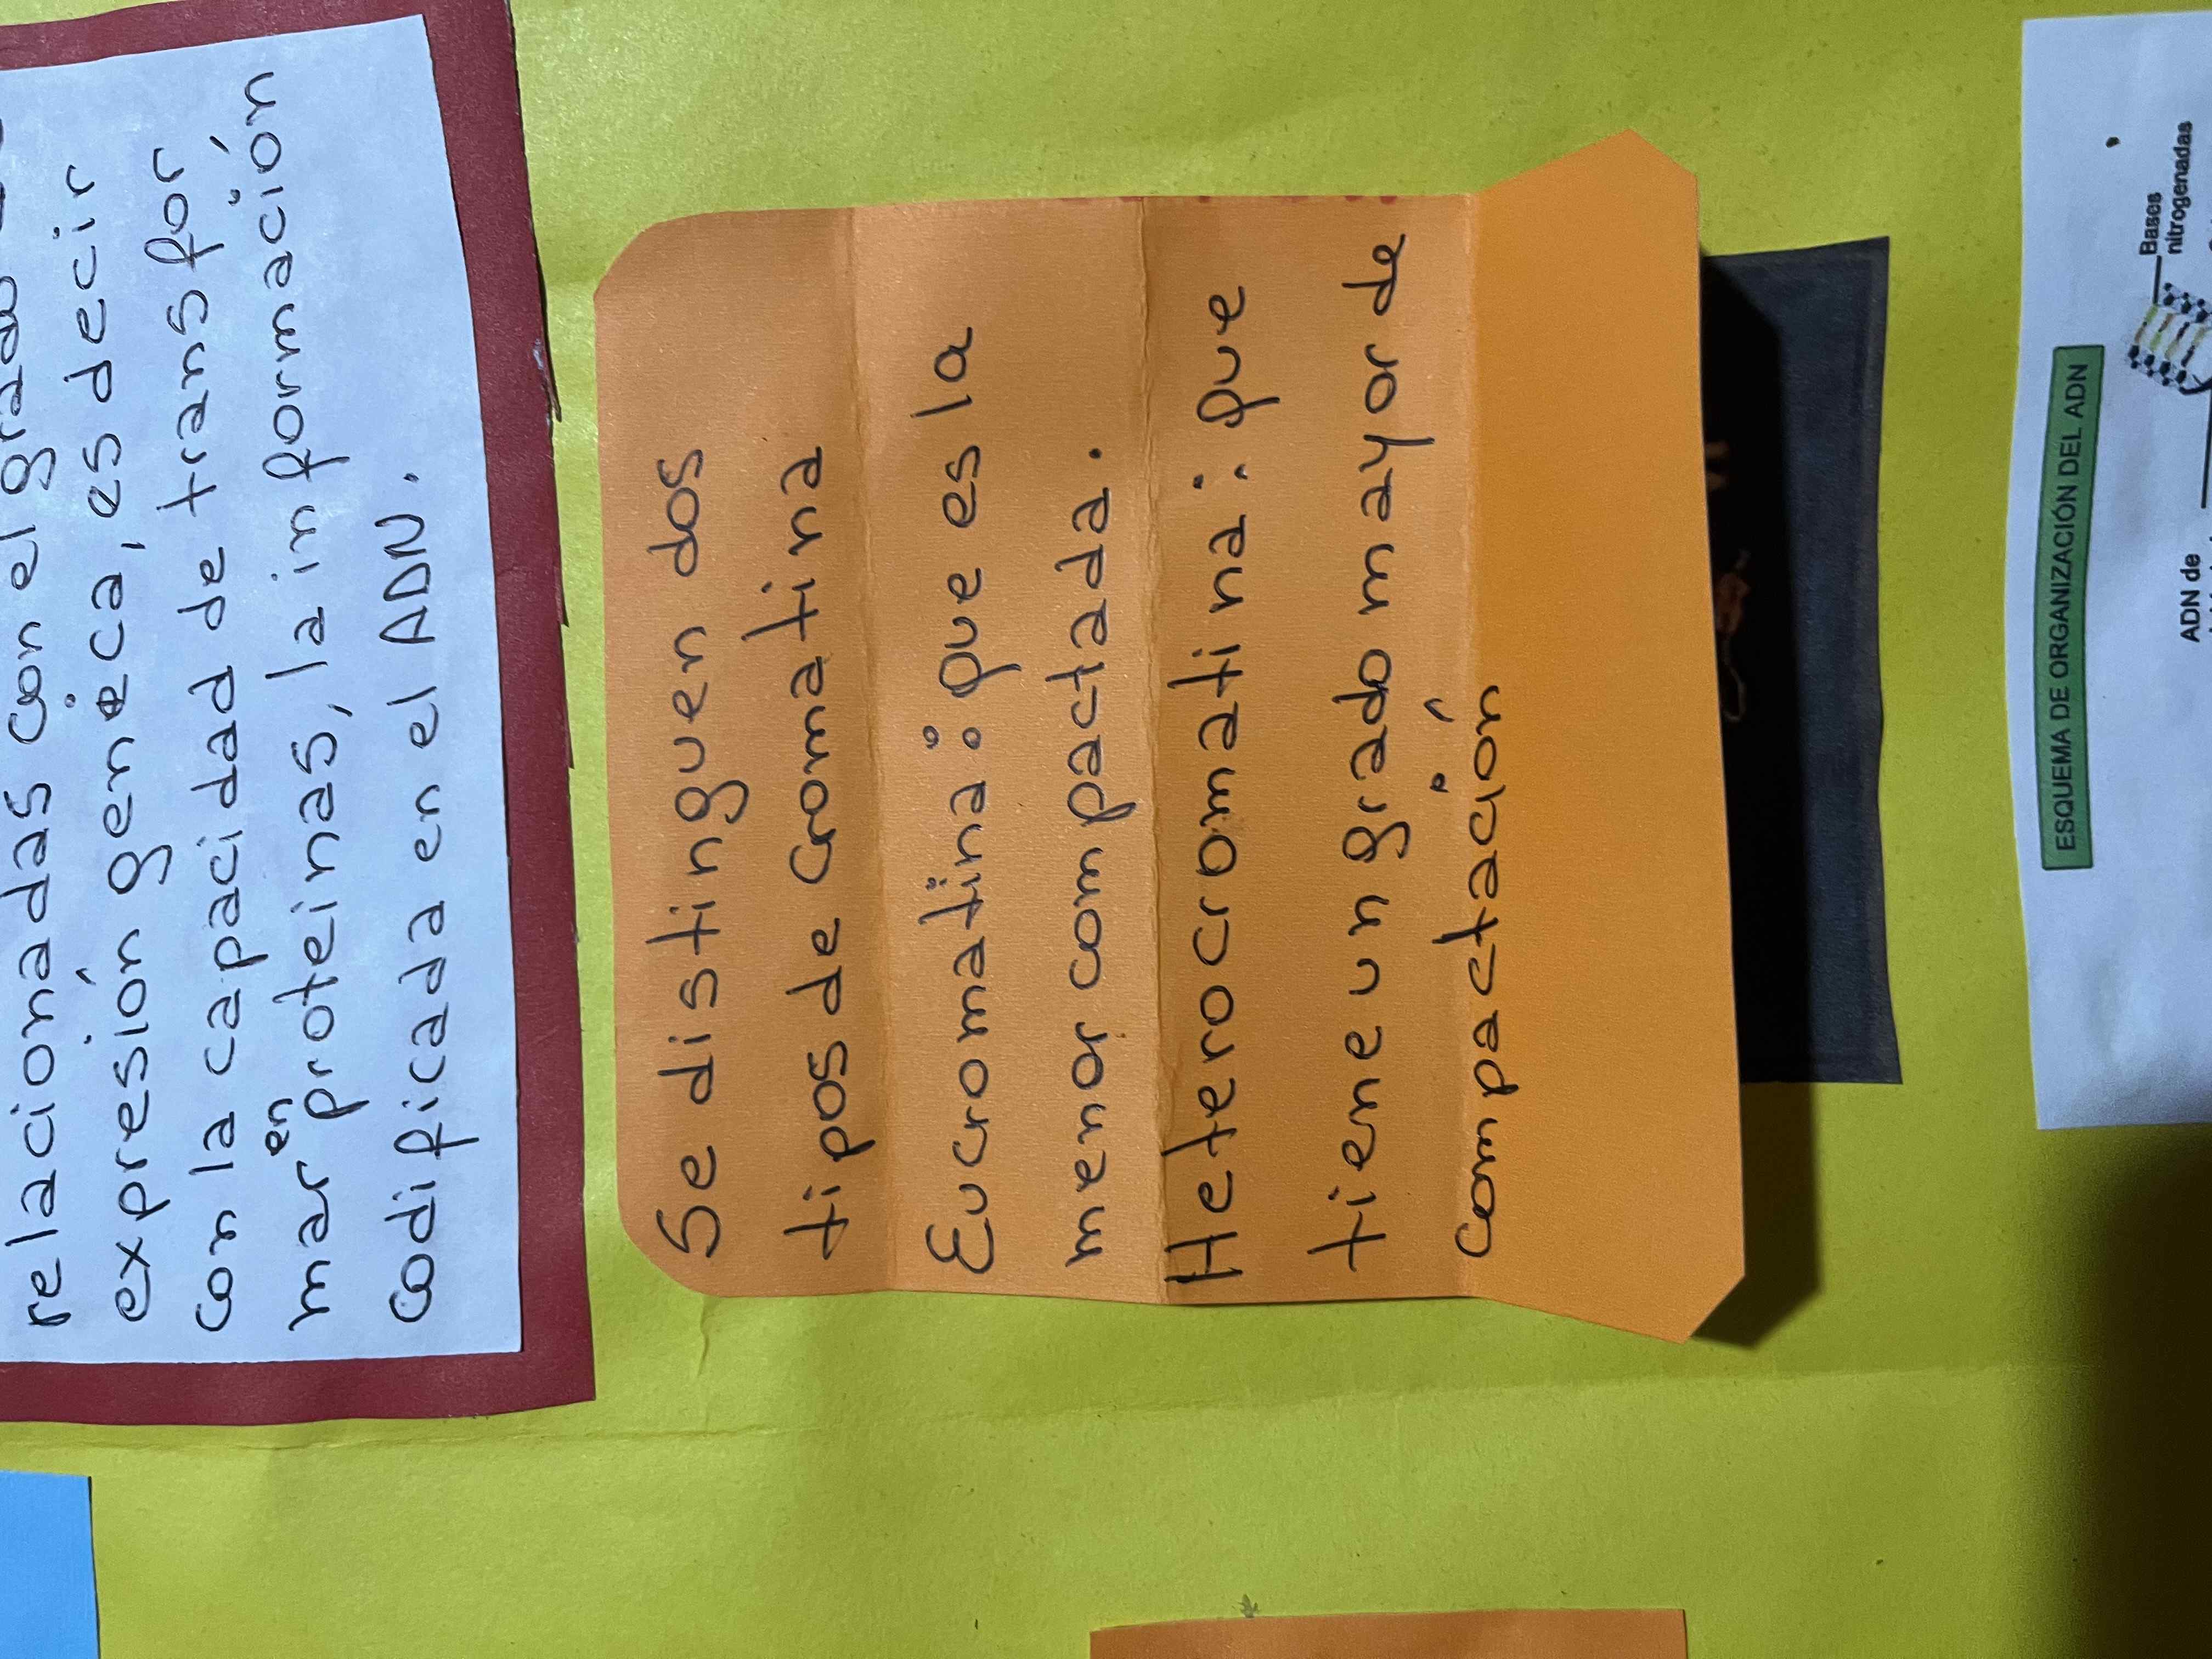 relacionadas con el grado
expresión genéica, es decir
con la capacidad de transfor
mar en proteinas, la información
codificada en el ADN.
Se distinguen dos
tipos de cromatina
Eucromatina: que es la
menor compactada.
Heterocromatina: que
tiene un grado mayor de
compactación
ESQUEMA DE ORGANIZACIÓN DEL ADN
Bases
nitrogenadas
ADN de